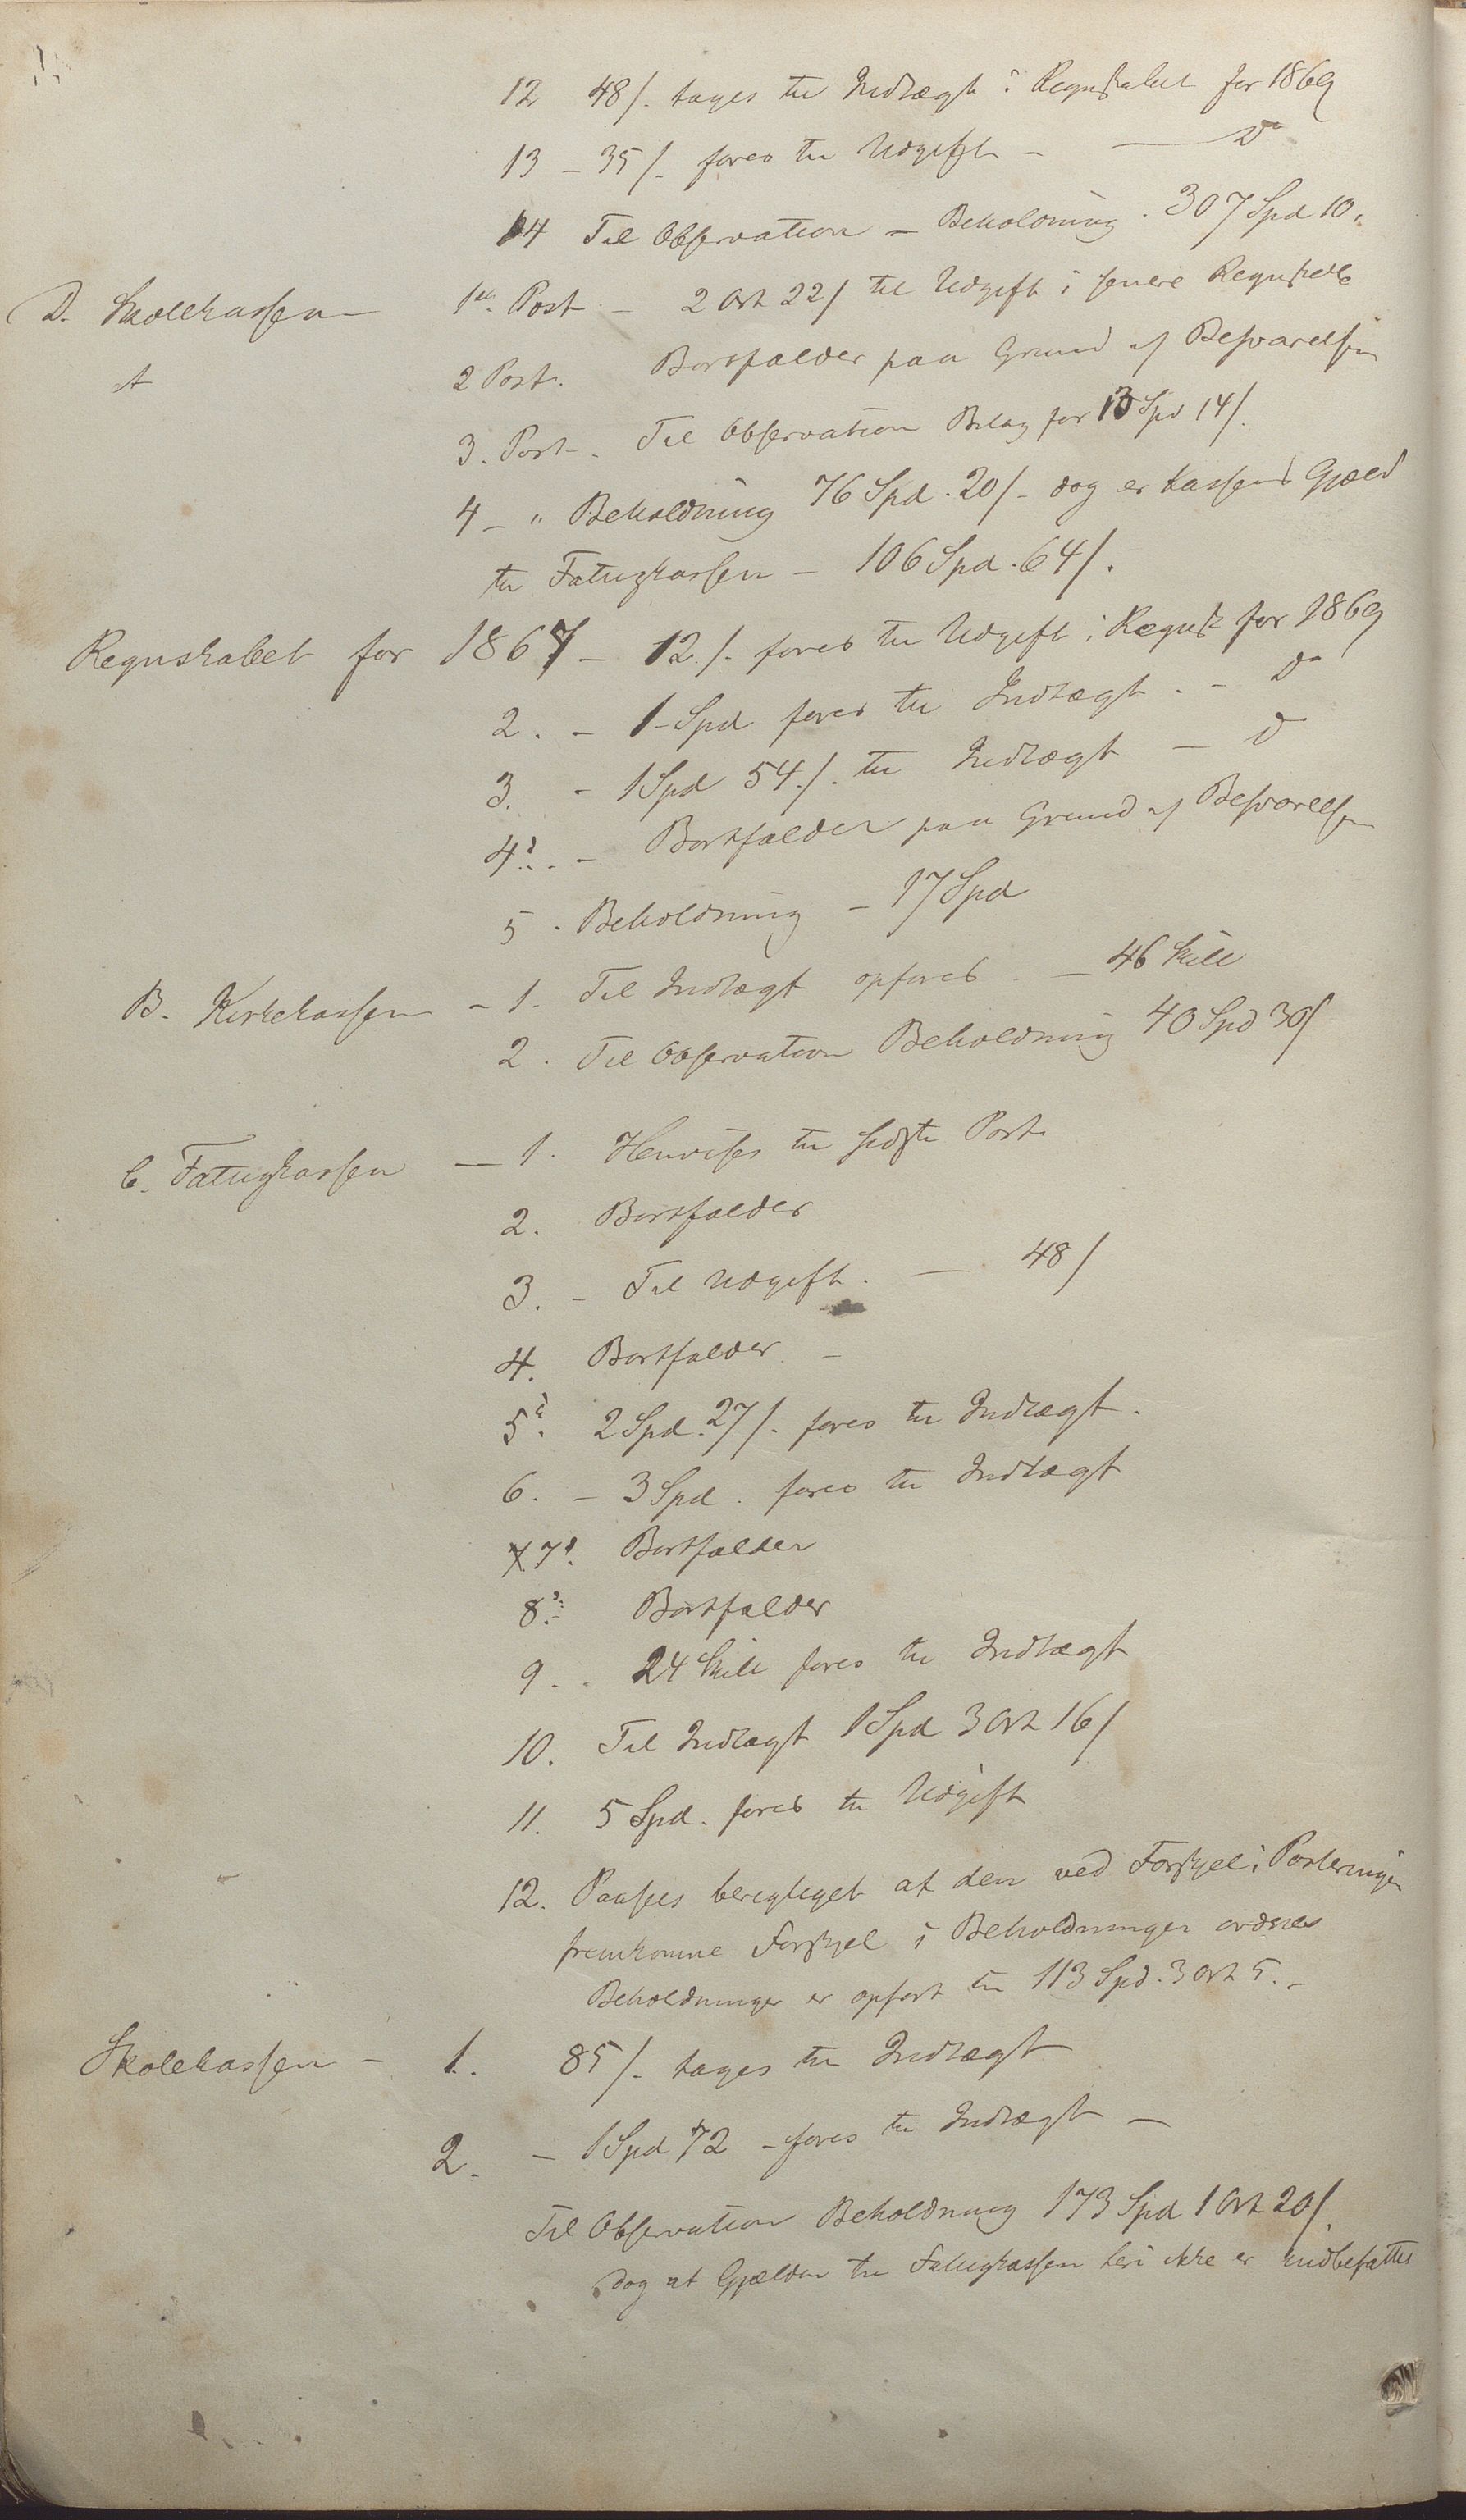 12 48/- tages til Indtægt i Regnskabet for 1869
13 - 35/- føres til Udgift - — Do
14 Til Observation - Beholdning. 307 Spd 10.
D. Skolekassen 1ste Post - 2 Ort 22/ til Udgift i senere Regnskab
A 2 Post. Bortfalder paa Grund af Besvarelsen
3. Post. Til Observation Bilag for 13 Spd 14/.
4 - " Beholdning 76 Spd. 20/- dog er Kassens Gjæld
til Fatigkassen - 106 Spd. 64/.
Regnskabet for 1867 - 12./- føres til Udgift i Regnsk for 1869
2. - 1-Spd føres til Indtægt. - Do
3. - 1 Spd 54./. til Indtægt - D
4. - Bortfalder paa Grund af Besvarelsen
5 - Beholdning - 17 Spd
B. Kirkekassen - 1. Til Indtægt opføres. - 46 Skill
2. Til Observation Beholdning 40 Spd 30/
C. Fatigkassen - 1. Henvises til sidste Post
2. Bortfalder
3. - Til Udgift. — 48/
4. Bortfalder -
5. 2 Spd. 27/. føres til Indtægt.
6. - 3 Spd. føres til Indtægt
7. Bortfalder
8. Bortfalder
9. . 24 Skill føres til Indtægt
10. Til Indtægt 1 Spd 3 Ort 16/
11. 5 Spd. føres til Udgift
12. Paasees berigtiget at den ved Forskjel i Posteringen
fremkomne Forskjel i Beholdninger ordnes
Beholdninger er opført til 113 Spd. 3 Ort 5. -
Skolekassen - 1. 85/- tages til Indtægt
2. - 1 Spd 72 - føres til Indtægt -
Til Observation Beholdning 173 Spd 1 Ort 20/.
dog at Gjælden til Fatigkassen heri ikke er indbefattet